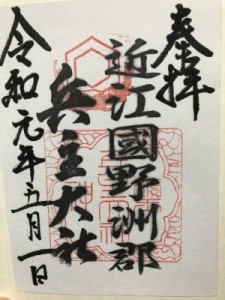 奉拝
近江國野洲郡
兵主大社
令和元年五月一日